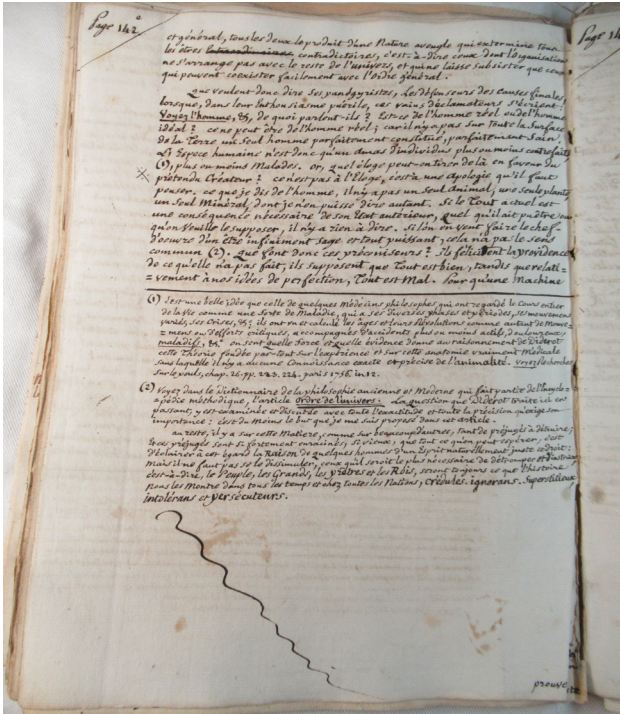 Page 142.
et général, tous les deux le produit d'une Nature aveugle qui extermine tous
les êtres contradictoires, c'est-à-dire ceux dont l'organisation
ne s'arrange pas avec le reste de l'univers, et qui ne laisse subsister que ceux
qui peuvent coexister facilement avec l'ordre général.
Que veulent donc dire ses panégyristes, les défenseurs des causes finales,
lorsque, dans leur Enthousiasme puérile, ces vains déclamateurs s'écrient:
Voyez l'homme, &c, de quoi parlent-ils? Est-ce de l'homme réel ou de l'homme
idéal? ce ne peut être de l'homme réel; car il n'y a pas sur toute la surface
de la Terre un seul homme parfaitement constitué, parfaitement sain.
L'Espece humaine n'est donc qu'un amas d'individus plus ou moins contrefaits
(1), plus ou moins Malades. or, quel éloge peut-on tirer de là en faveur du
prétendu Créateur? ce n'est pas à l'Éloge, c'est a une apologie qu'il faut
penser. ce que je dis de l'homme, il n'y a pas un seul animal, une seule plante,
un seul Minéral, dont je n'en puisse dire autant. Si le Tout actuel est
une conséquence nécessaire de son État antérieur, quel qu'il ait pu être ou
qu'on veuille le supposer, il n'y a rien à dire. Si l'on en veut faire le chef-
d'oeuvre d'un être infiniment sage et tout puissant, cela n'a pas le sens
commun (2). Que font donc ces préconiseurs? Ils félicitent la providence
de ce qu'elle n'a pas fait, ils supposent que Tout est bien, tandis que relati=
=vement à nos idées de perfection, Tout est Mal. Pour qu'une Machine
(1) C'est une belle idée que celle de quelques Médecins philosophes, qui ont regardé le Cours entier
de la Vie comme une sorte de Maladie, qui a ses diverses phases et périodes, ses mouvemens
variés, ses Crises, &c; ils ont vu et calculé les âges et leurs Révolutions comme autant de mouve=
=mens ou d'efforts critiques, accompagnés d'accidents plus ou moins actifs, douloureux,
maladifs, &c. on sent quelle force et quelle évidence donne au raisonnement de Diderot
cette Théorie fondée par-tout sur l'expérience et sur cette anatomie vraiment Médicale
sans laquelle il n'y a aucune Connoissance exacte et précise de l'animalité. Voyez Recherches
sur le pouls, chap. 26. pp. 223. 224. paris 1756. in 12.
(2) Voyez dans le Dictionnaire de la philosophie ancienne et Moderne qui fait partie de l'Encyclo=
=pédie méthodique, l'article ordre de l'univers. La question que Diderot traite ici en
passant, y est examinée et discutée avec toute l'exactitude et toute la précision qu'exige son
importance: c'est du Moins le but que je me suis proposé dans cet article.
au reste, il y a sur cette Matiere, comme sur beaucoup d'autres, tant de préjugés à détruire;
& ces préjugés sont si fortement enracinés, si vieux, que tout ce qu'on peut espérer, c'est
d'éclairer à cet égard la Raison de quelques hommes d'un Esprit naturellement juste et droit:
Mais il ne faut pas se le dissimuler, ceux qu'il seroit le plus nécessaire de détromper et d'instruire,
c'est-à-dire, le Peuple, les Grands, les prêtres et les Rois, seront toujours ce que l'histoire
nous les Montre dans tous les temps et chez toutes les Nations, crédules, ignorans, superstitieux
intolérans et persécuteurs.
prouve